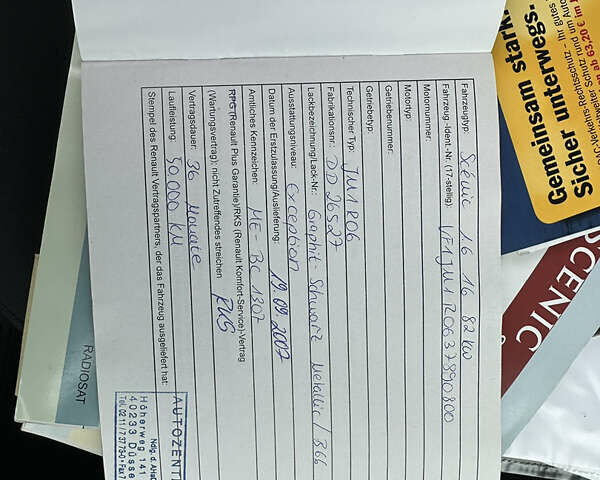 Fahrzeugtyp: Scénic 1.6 16 82 kw
Fahrzeug-Ident.-Nr. (17-stellig): VF1JM1R0637890800
Motornummer:
Motortyp:
Getriebenummer:
Getriebetyp:
Technischer Typ: JM1R06
Fabrikationsnr.: DD26527
Lackbezeichnung/Lack-Nr.: Graphit-Schwarz Metallic / B66
Ausstattungsniveau: Exception
Datum der Erstzulassung/Auslieferung: 19.09.2007
Amtliches Kennzeichen: ME-BC 1307
RPG (Renault Plus Garantie)/RKS (Renault Komfort-Service)-Vertrag
(Wartungsvertrag); nicht Zutreffendes streichen
Vertragsdauer: 36 Monate
Laufleistung: 50.000 KM
Stempel des Renault Vertragspartners, der das Fahrzeug ausgeliefert hat:
AUTOZENT
Höherweg 141
40233 Düsse
RADIOSAT
Gemeinsam stark
Sicher unterwegs.
ab 63,20 € im
SCENIC